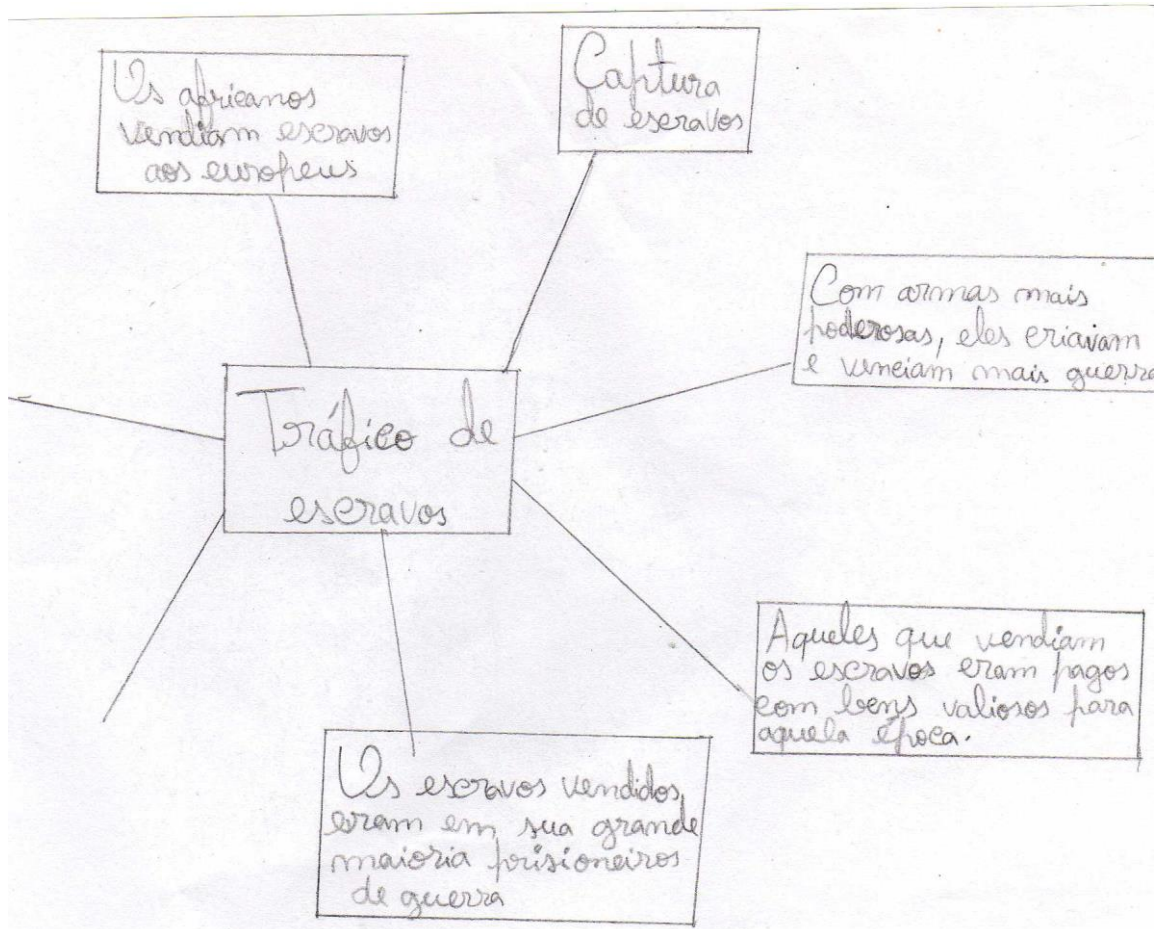 Os africanos
vendiam escravos
aos europeus
Captura
de escravos
Com armas mais
poderosas, eles criavam
e venciam mais guerra
Tráfico de
escravos
Aqueles que vendiam
os escravos eram pagos
com bens valiosos para
aquela época.
Os escravos vendidos,
eram em sua grande
maioria prisioneiros
de guerra